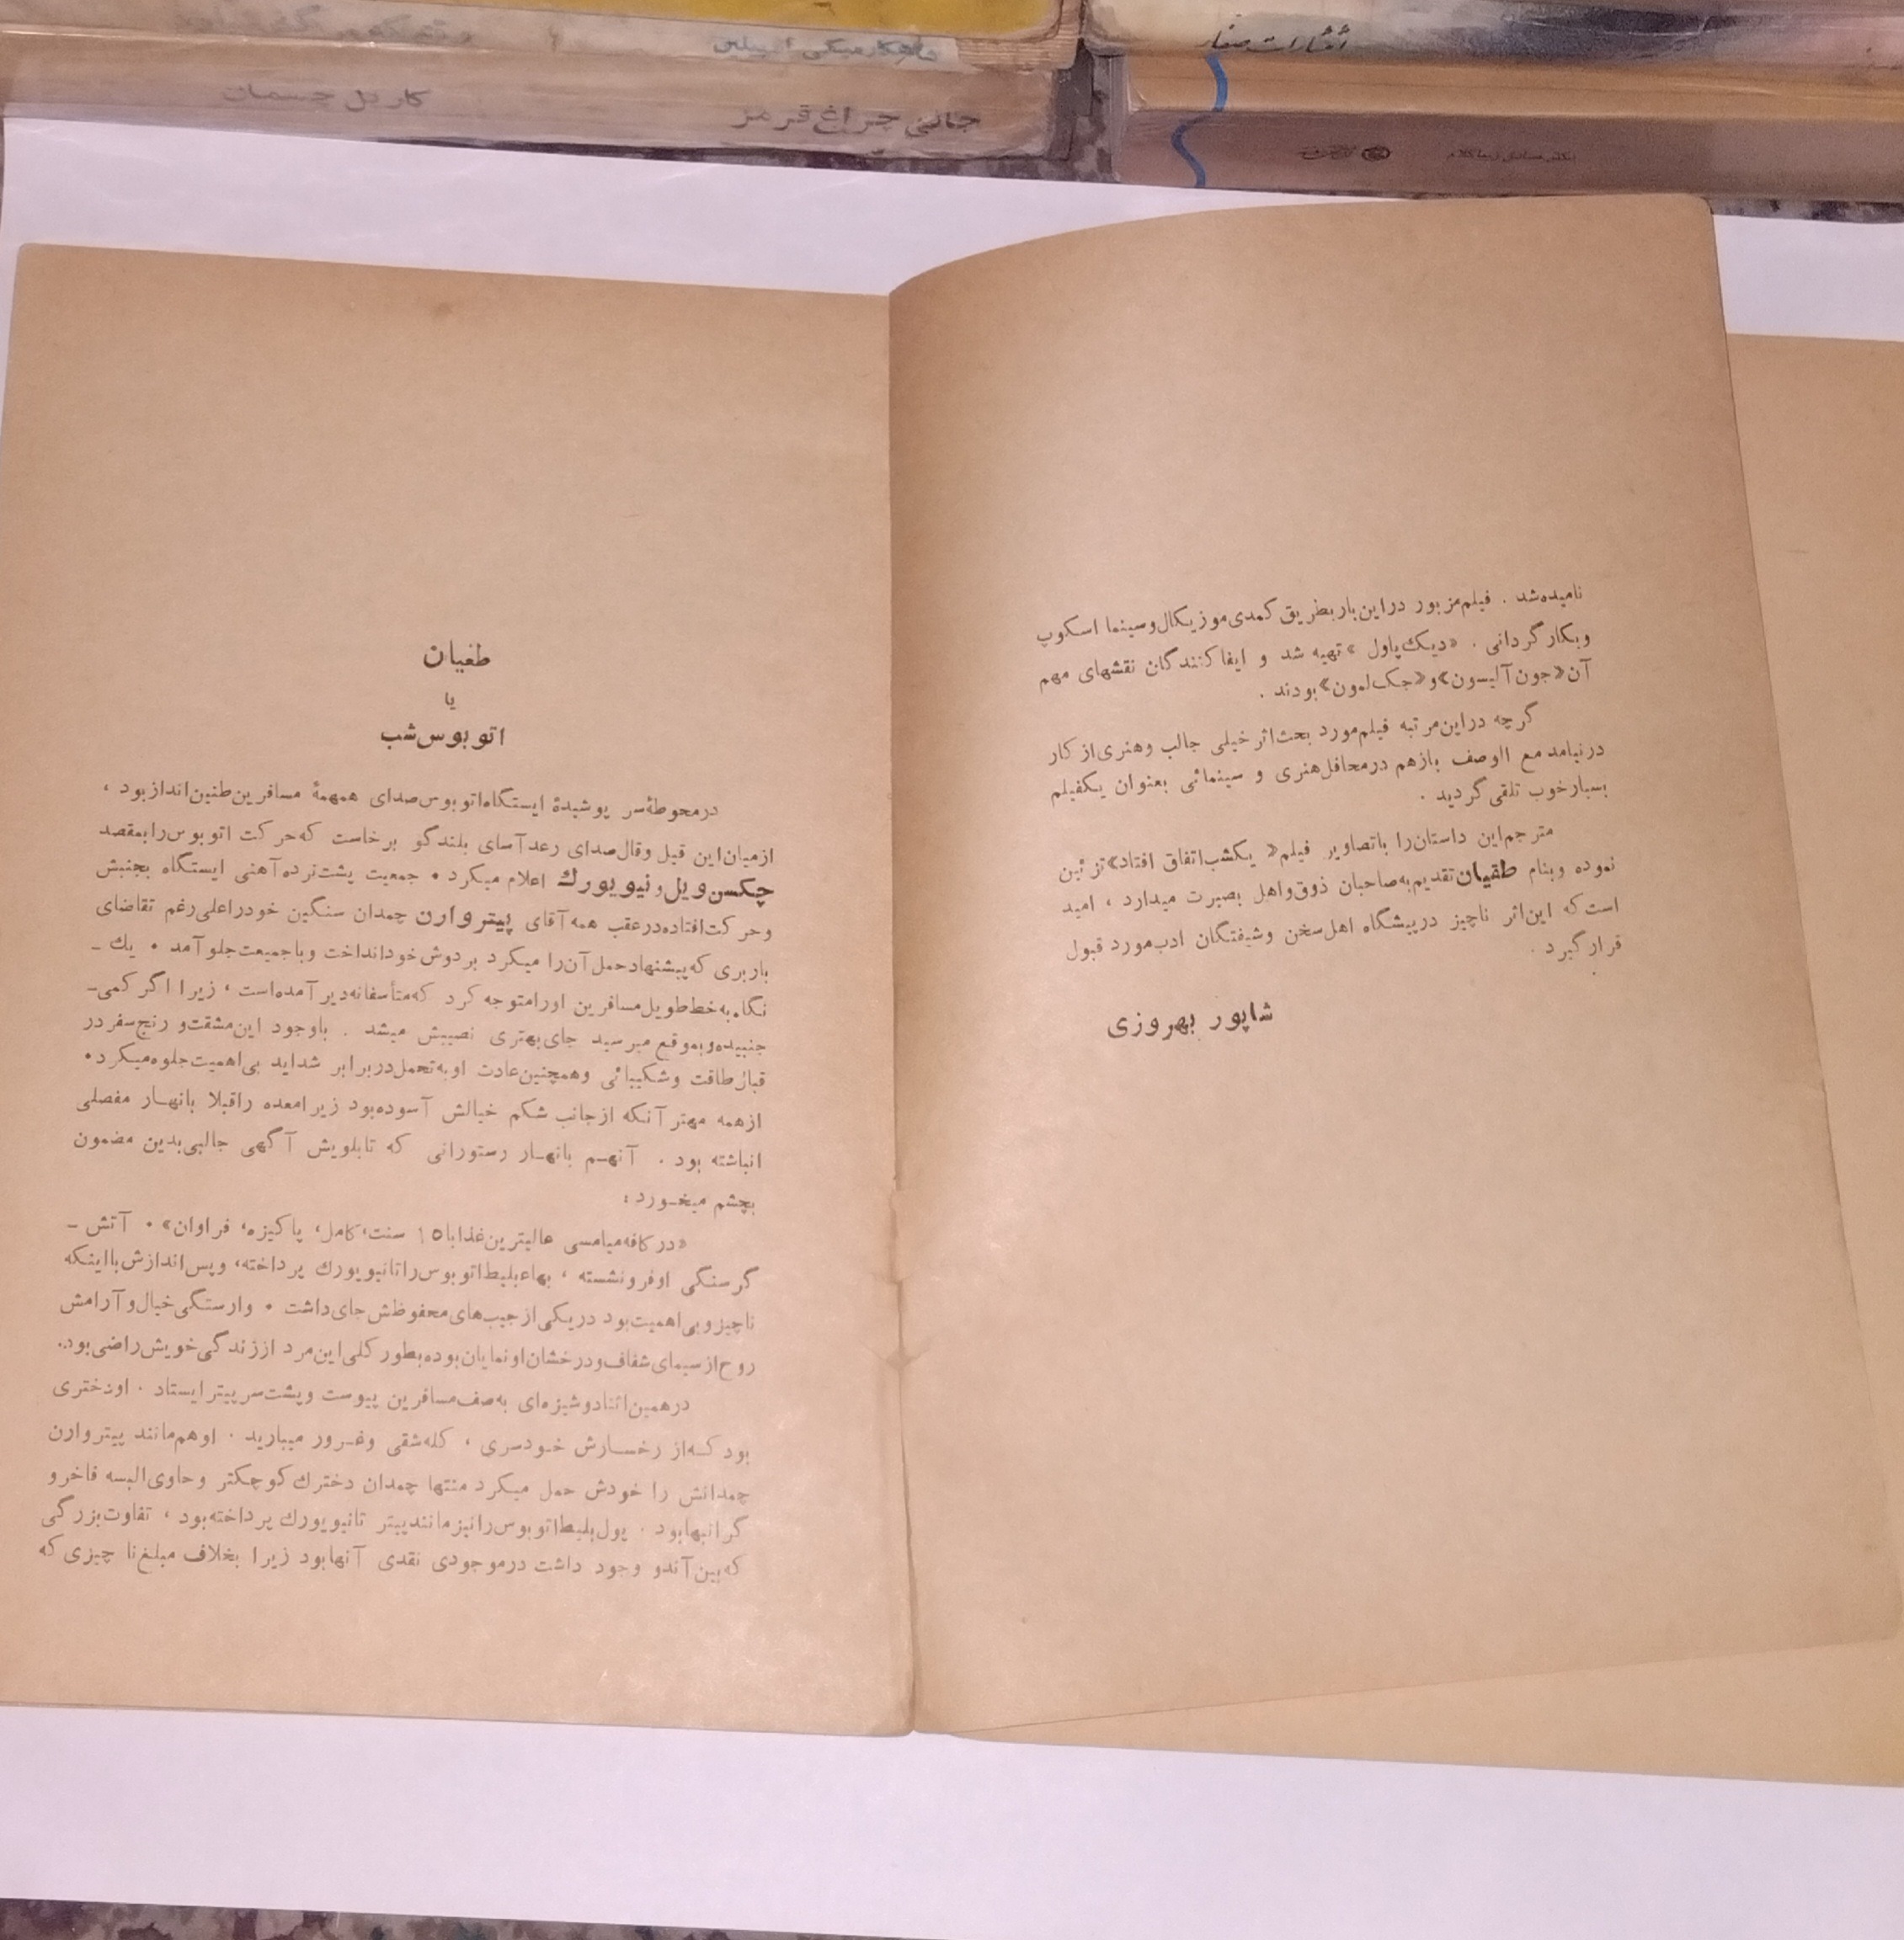 جانی چراغ قرمز
کارل چسمان
نامیده شد . فیلم مزبور در این بار بطریق کمدی موزیکال و سینما اسکوپ
وبکارگردانی . «دیك پاول » تهیه شد و ایفاکنندگان نقشهای مهم
آن «جون آلیسون» و «جك لمون» بودند .
گرچه در این مرتبه فیلم مورد بحث اثر خیلی جالب وهنری از کار
درنیامد مع الوصف بازهم درمحافل هنری و سینمائی بعنوان یکفیلم
بسیارخوب تلقی گردید .
مترجم این داستان را باتصاویر فیلم « یکشب اتفاق افتاد» تزئین
نموده وبنام طقیان تقدیم به صاحبان ذوق واهل بصیرت میدارد ، امید
است که این اثر ناچیز درپیشگاه اهل سخن وشیفتگان ادب مورد قبول
قرار گیرد .
شاپور بهروزی
طغیان
یا
اتوبوس شب
درمحوطهٔ سر پوشیدهٔ ایستگاه اتوبوس صدای همهمهٔ مسافرین طنین انداز بود ،
ازمیان این قیل وقال صدای رعدآسای بلندگو برخاست که حرکت اتوبوس را بمقصد
جکسن ویل و نیویورك اعلام میکرد . جمعیت پشت نرده آهنی ایستگاه بجنبش
وحرکت افتاده درعقب همه آقای پیتروارن چمدان سنگین خودراعلی رغم تقاضای
باربری که پیشنهاد حمل آن را میکرد بردوش خود انداخت وباجمیعت جلو آمد . یك ـ
نگاه به خط طویل مسافرین اورامتوجه کرد که متأسفانه دیر آمده است ، زیرا اگر کمی ـ
جنبیده وبموقع میرسید جای بهتری نصیبش میشد . باوجود این مشقت و رنج سفر در
قبال طاقت وشکیبائی وهمچنین عادت او به تحمل دربرابر شداید بی اهمیت جلوه میکرد .
ازهمه مهتر آنکه ازجانب شکم خیالش آسوده بود زیرا معده راقبلا بانهار مفصلی
انباشته بود . آنهم بانهار رستورانی که تابلویش آگهی جالبی بدین مضمون
بچشم میخورد :
«در کافه میامسی عالیترین غذا با ۱۵ سنت، کامل، پاکیزه، فراوان» . آتش ـ
گرسنگی اوفرونشسته ، بهاء بلیط اتوبوس را تانیویورك پرداخته، وپس اندازش بااینکه
ناچیز و بی اهمیت بود دریکی از جیب های محفوظش جای داشت . وارستگی خیال و آرامش
روح از سیمای شفاف ودرخشان اونمایان بوده بطور کلی این مرد از زندگی خویش راضی بود.
درهمین اثنا دوشیزه ای به صف مسافرین پیوست وپشت سر پیتر ایستاد . اودختری
بود که از رخسارش خودسری ، کله شقی وغرور میبارید . اوهم مانند پیتر وارن
چمدانش را خودش حمل میکرد منتها چمدان دخترك کوچکتر وحاوی البسه فاخر و
گرانبها بود . پول بلیط اتوبوس رانیز مانند پیتر تانیویورك پرداخته بود ، تفاوت بزرگی
که بین آندو وجود داشت درموجودی نقدی آنها بود زیرا بخلاف مبلغ نا چیزی که